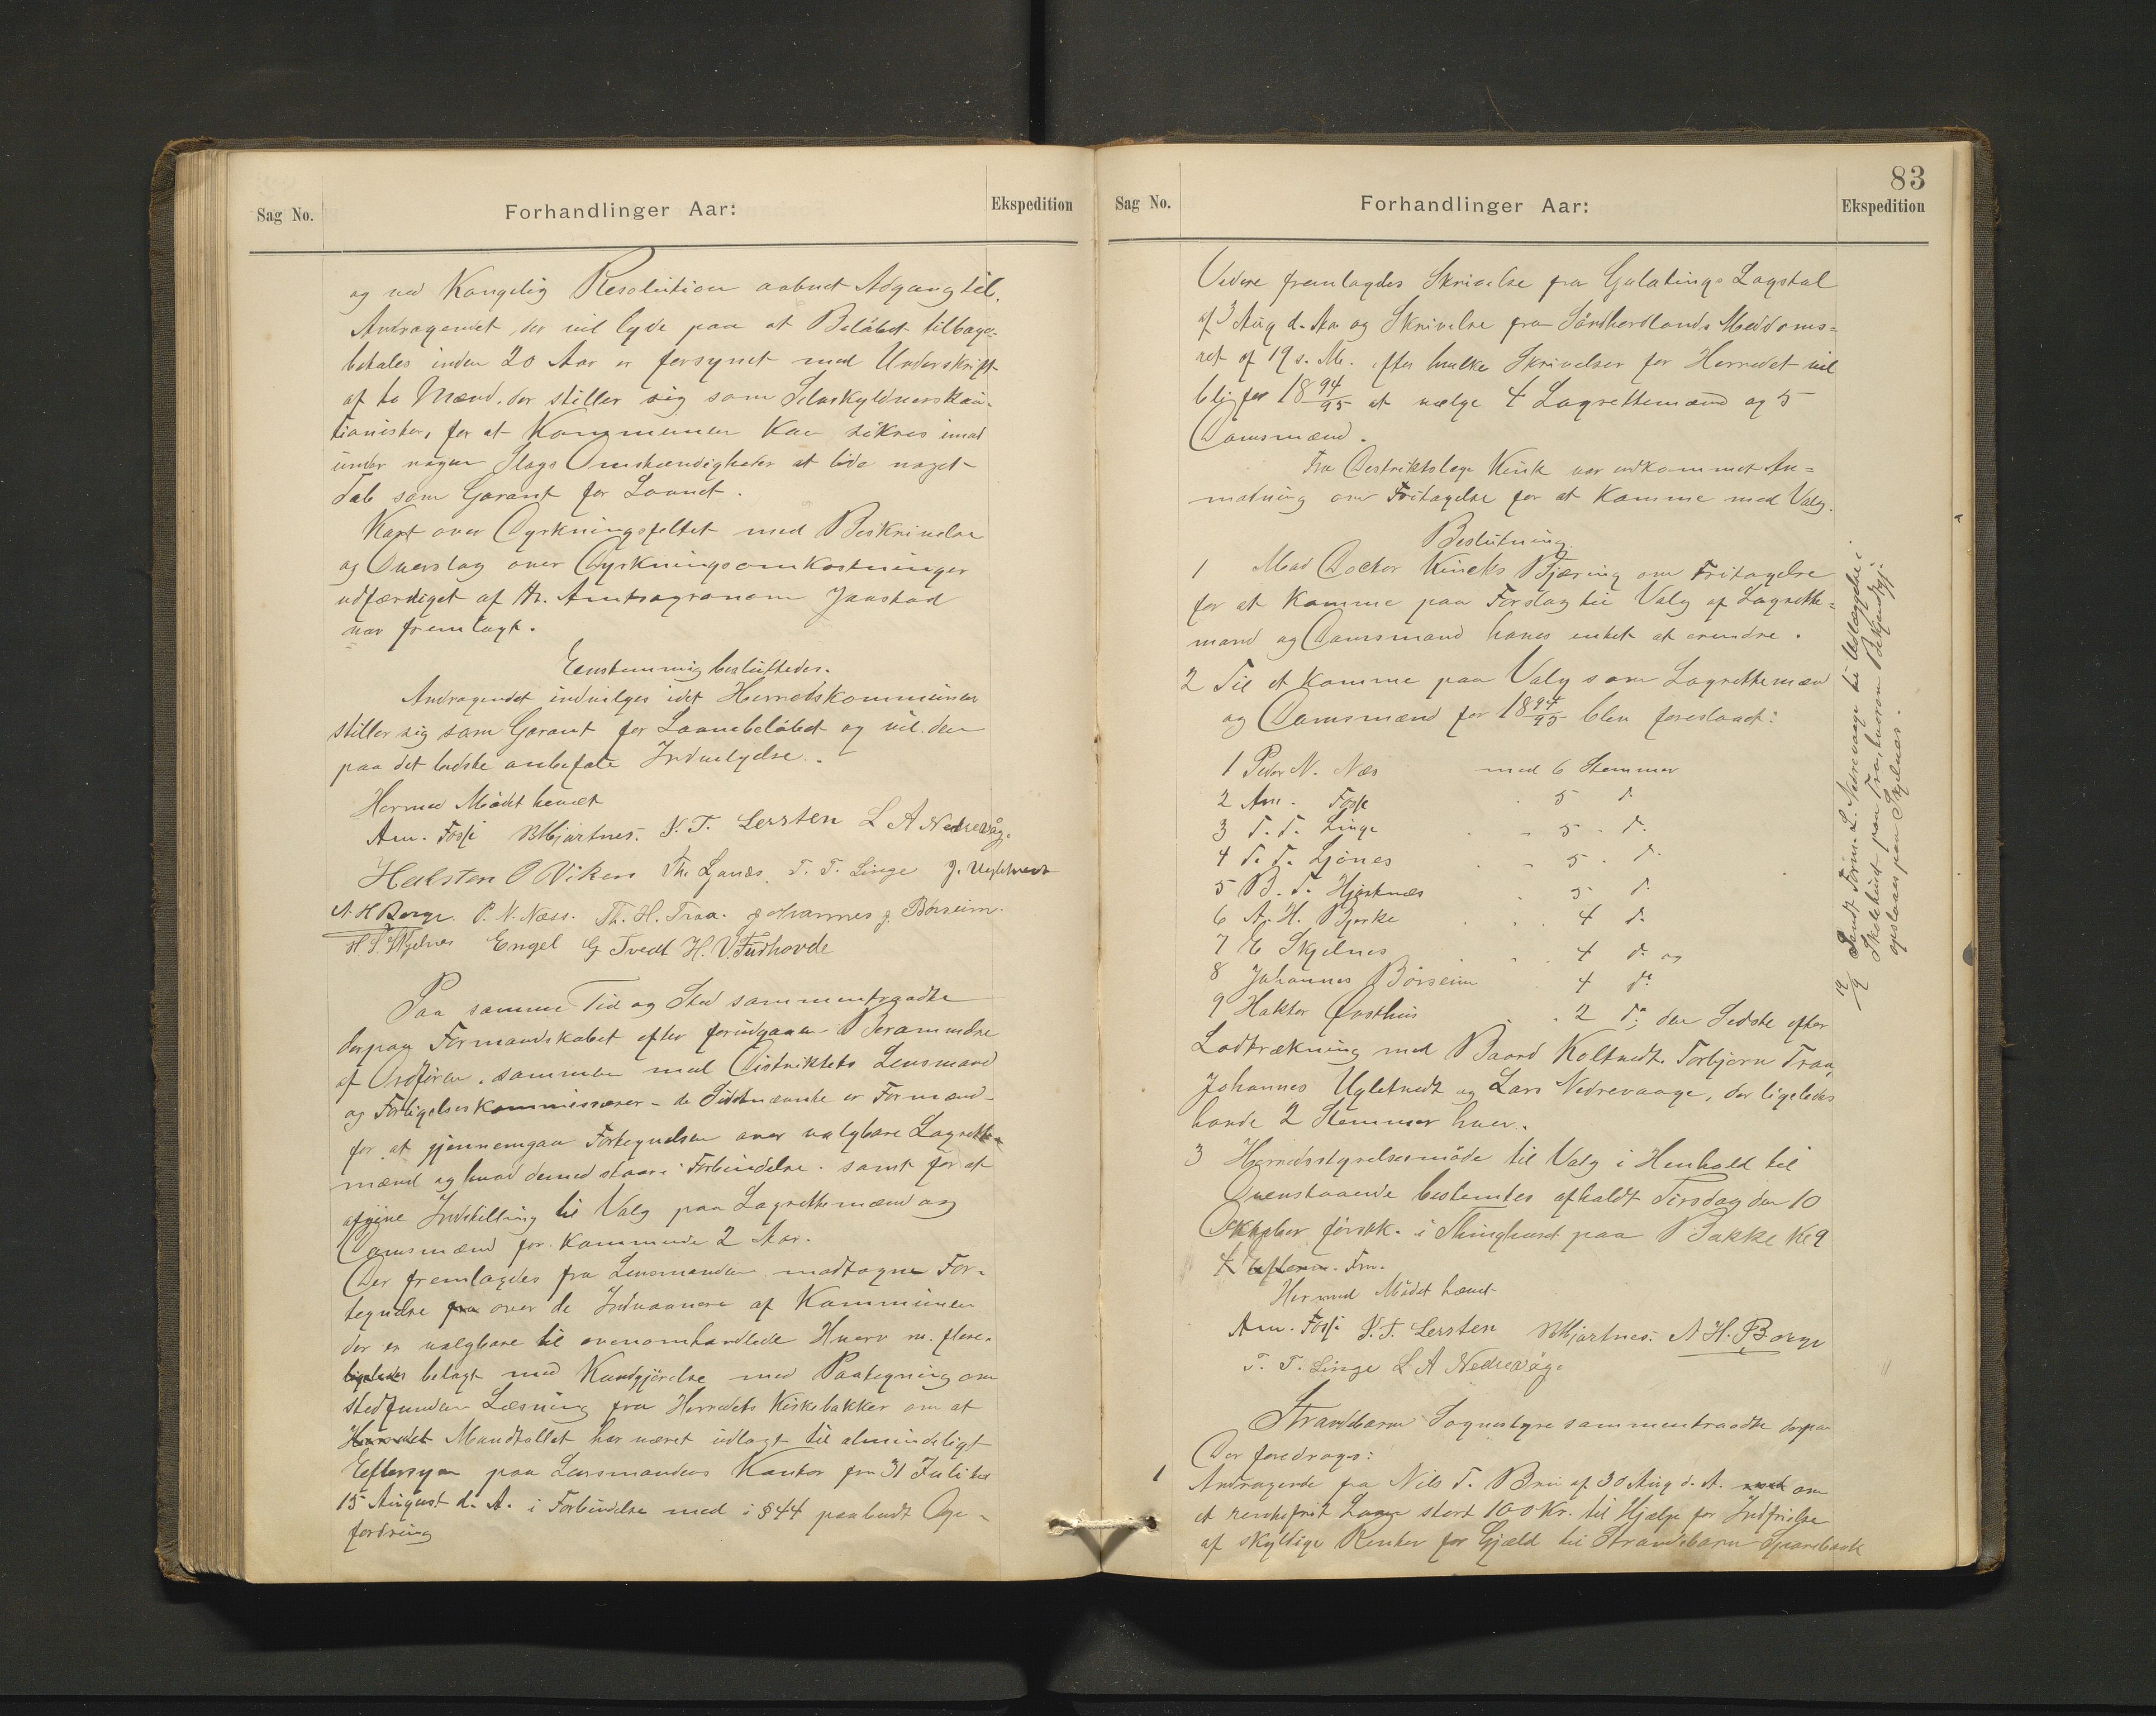 Sag No.
Forhandlinger Aar:
Ekspedition
og ved Kongelig Resolution aabnet Adgang til.
Andragendet, der vil lyde paa at Beløbet tilbage-
betales inden 20 Aar er forsynet med Underskrift
af to Mænd, der stiller sig som Selvskyldnerskau-
tionister, for at Kommunen kan sikres imod
under nogen Slags Omstændigheder at lide noget
Tab som Garant for Laanet.
Kart over Dyrkningsfeltet med Beskrivelse
og Overslag over Dyrkningsomkostninger
udfærdiget af Hr. Amtsagronom Jaastad
var fremlagt.
Eenstemmig besluttedes.
Andragendet indvilges idet Herredskommunen
stiller sig som Garant for Laanebeløbet og vil den
paa det bedste anbefale Indvilgelse.
Hermed Mødet hævet
Am. Fosse BHjartnes. N. T. Lersten L A Nedrevåge
Halsten O Viken Th. Ljønes. T. T. Linge J. Ugletvedt
A. H Berge. P. N. Næss. Th. H. Traa. Johannes J. Børseim.
H. S. Skjelnes Engel G Tvedt H. V. Fudhovde
Paa samme Tid og Sted sammentraadte
derpaa Formandskabet efter forudgaaen Berammelse
af Ordføren sammen med Distriktets Lensmand
og Forligelseskommissærer - de Sidstnævnte er Formænd -
for at gjennemgaa Fortegnelsen over valgbare Lagrette-
mænd og hvad dermed staar i Forbindelse samt for at
afgive Indstilling til Valg paa Lagrettemænd og
Domsmænd for kommende 2 Aar.
Der fremlagdes fra Lensmanden modtagne For-
tegnelse fra over de Indvaanere af Kommunen
der er valgbare til ovenomhandlede Hverv m. flere.
ligeledes belagt med Kundgjørelse med Paategning om
stedfunden Læsning fra Herredets Kirkebakker om at
Herredet Mandtallet har været udlagt til almindeligt
Eftersyn paa Lensmandens Kontor fra 31 Juli til
15 August d. A. i Forbindelse med i § 44 paabudt Op-
fordring
Sag No.
Forhandlinger Aar:
83
Ekspedition
Videre fremlagdes Skrivelse fra Gulatings Lagstol
af 3 Aug d. Aar og Skrivelse fra Söndhordlands Meddoms-
ret af 19 s. M. efter hvilke Skrivelser for Herredet vil
bli for 18 94/95 at vælge 4 Lagrettemænd og 5
Domsmænd.
Fra Distriktslæge Kink var indkommet An-
modning om Fritagelse for at komme med Valg.
Beslutning
1 Mod Doctor Kincks Begjæring om Fritagelse
for at komme paa Forslag til Valg af Lagrette-
mand og Domsmand haves intet at erindre.
2 Til at komme paa Valg som Lagrettemænd
og Domsmænd for 18 94/95 blev foreslaaet:
1 Peder N. Næs med 6 Stemmer
2 Am. Fosse 5 do
3 T. T. Linge 5 do
4 T. T. Ljönes 5 do
5 B. T. Hjartnæs 5 do
6 A. H. Berke 4 do
7 E Skjelnes 4 do og
8 Johannes Börseim 4 do
9 Haktor Øvsthus 2 do, den Sidste efter
Lodtrækning med Baard Koltvedt. Torbjørn Traa,
Johannes Ugletvedt og Lars Nedrevaage, der ligeledes
havde 2 Stemmer hver.
3 Herredsstyrelsesmöde til Valg i Henhold til
Ovenstaaende bestemtes afholdt Tirsdag den 10
Oktober førstk. i Thinghuset paa Bakke Kl 9
Fm.
Hermed Mödet hævet
Am. Fosse N. T. Lersten BHjartnes. A H. Berge
T. T. Linge L A Nedrevåge
Strandebarm Sognestyre sammentraadte derpaa
Der foredroges:
1 Andragende fra Nils T. Bru af 30 Aug d. A. om
et rentefrit Laan stort 100 Kr. til Hjælp for Indfrielse
af skyldige Renter for Gjæld til Strandebarm Sparebank
14/9 Sendt Form. L. Nedrevaage til Udlæggelse i
Skolehuset paa Fosse hvorom Bekjendtgj.
opslaaes paa Skjelnes.